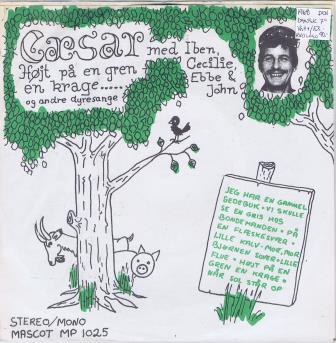 Cæsar
med Iben,
Cecilie,
Ebbe &
John
Højt på en gren
en krage.....
og andre dyresange
JEG HAR EN GAMMEL
GEDEBUK • VI SKULLE
SE EN GRIS HOS
BONDEMANDEN • PÅ
EN FLÆSKESVÆR •
LILLE KALV • MOR, MOR
BJØRNEN SOVER • LILLE
FLUE • HØJT PÅ EN
GREN EN KRAGE •
NÅR SOL STÅR OP
STEREO/MONO
MASCOT MP 1025